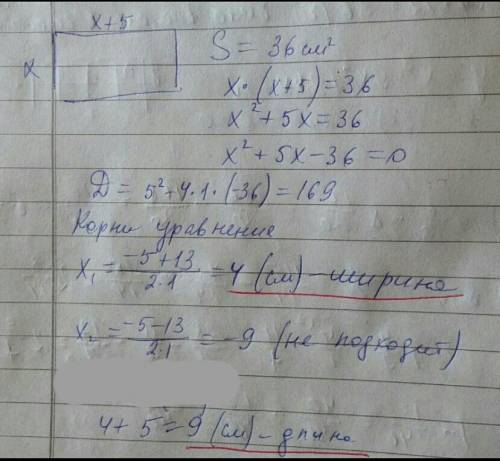 x+5
x
S = 36 см²
x·(x+5)=36
x²+5x=36
x²+5x-36=0
D = 5²+4·1·(-36)=169
Корни уравнение
x₁ = (-5+13)/(2·1) = 4 (см) - ширина
x₂ = (-5-13)/(2·1) = -9 (не подходит)
4+5=9 (см) - длина